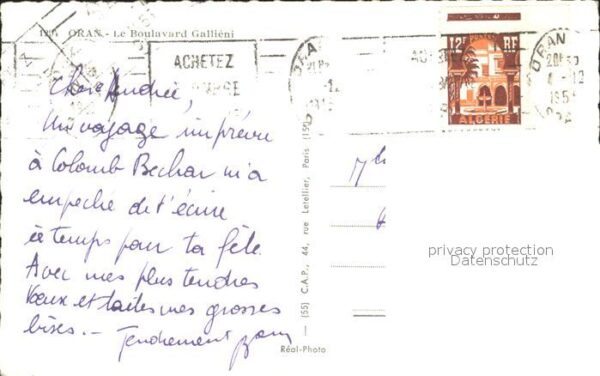 ORAN - Le Boulavard Galliéni
ACHETEZ
12F POSTES RF
ALGERIE
ORAN
4-12
195
Chère Andrée,
Un voyage imprévu
à Colomb Bechar m'a
empeché de t'écrire
à temps pour ta fête.
Avec mes plus tendres
Vœux et toutes mes grosses
bises.-
Tendrement
(55) C.A.P., 44, rue Letellier, Paris (15e)
Réal-Photo
privacy protection
Datenschutz